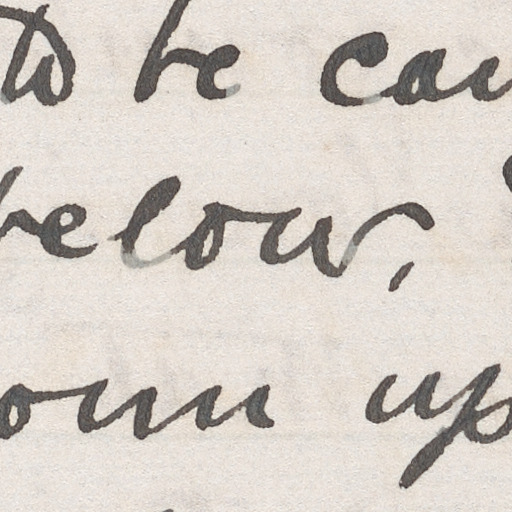 to be cau
below,
oun up